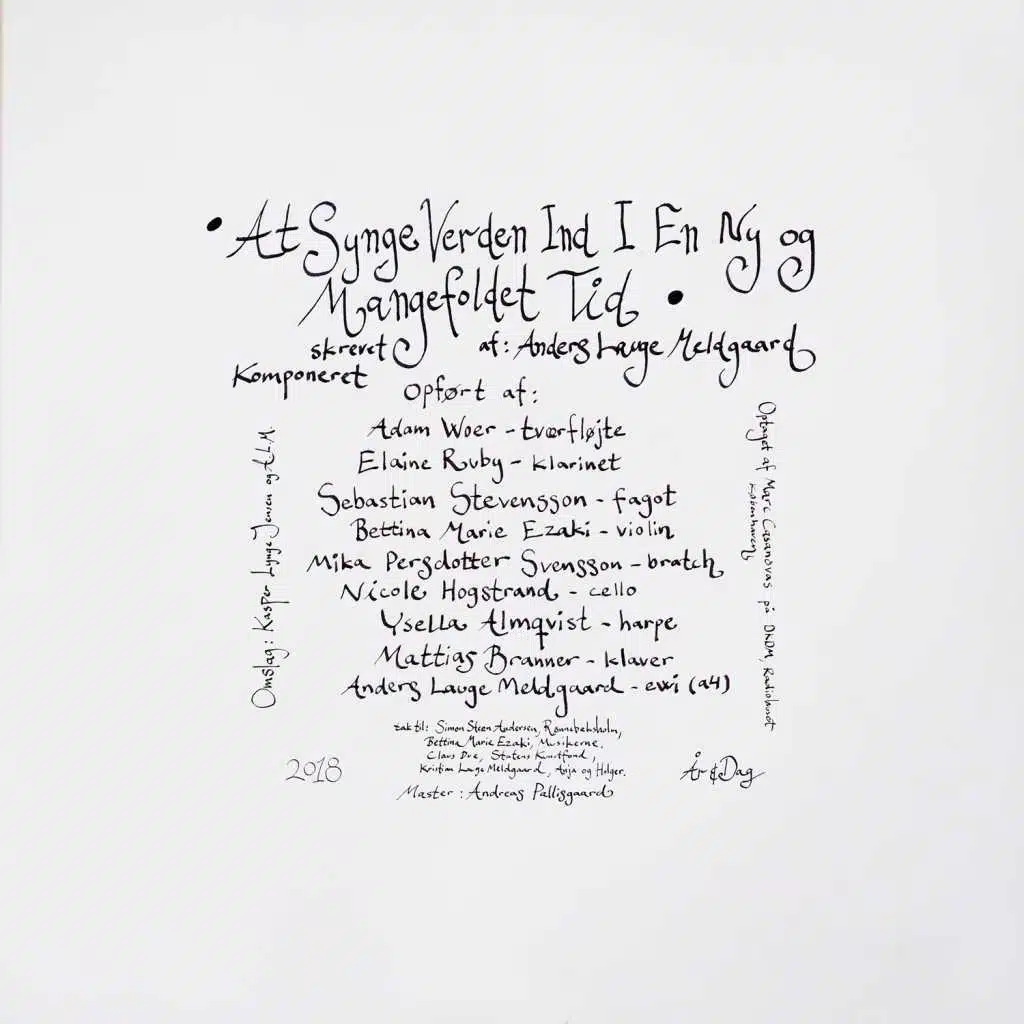 • At Synge Verden Ind I En Ny og
Mangefoldet Tid •
skrevet af: Anders Lauge Meldgaard
Komponeret
Opført af:
Adam Woer - tværfløjte
Elaine Ruby - klarinet
Sebastian Stevensson - fagot
Bettina Marie Ezaki - violin
Mika Persdotter Svensson - bratch
Nicole Hogstrand - cello
Ysella Almqvist - harpe
Mattias Branner - klaver
Anders Lauge Meldgaard - ewi (a4)
tak til: Simon Steen Andersen, Rønnebæksholm,
Bettina Marie Ezaki, Musikerne,
Claus Due, Statens Kunstfond,
Kristian Lauge Meldgaard, Anja og Holger.
Master: Andreas Pallisgaard
2018
År & Dag
Omslag: Kasper Lynge Jensen og A.L.M.
Optaget af Marc Casanovas på DKDM, Radiohuset
Københavns